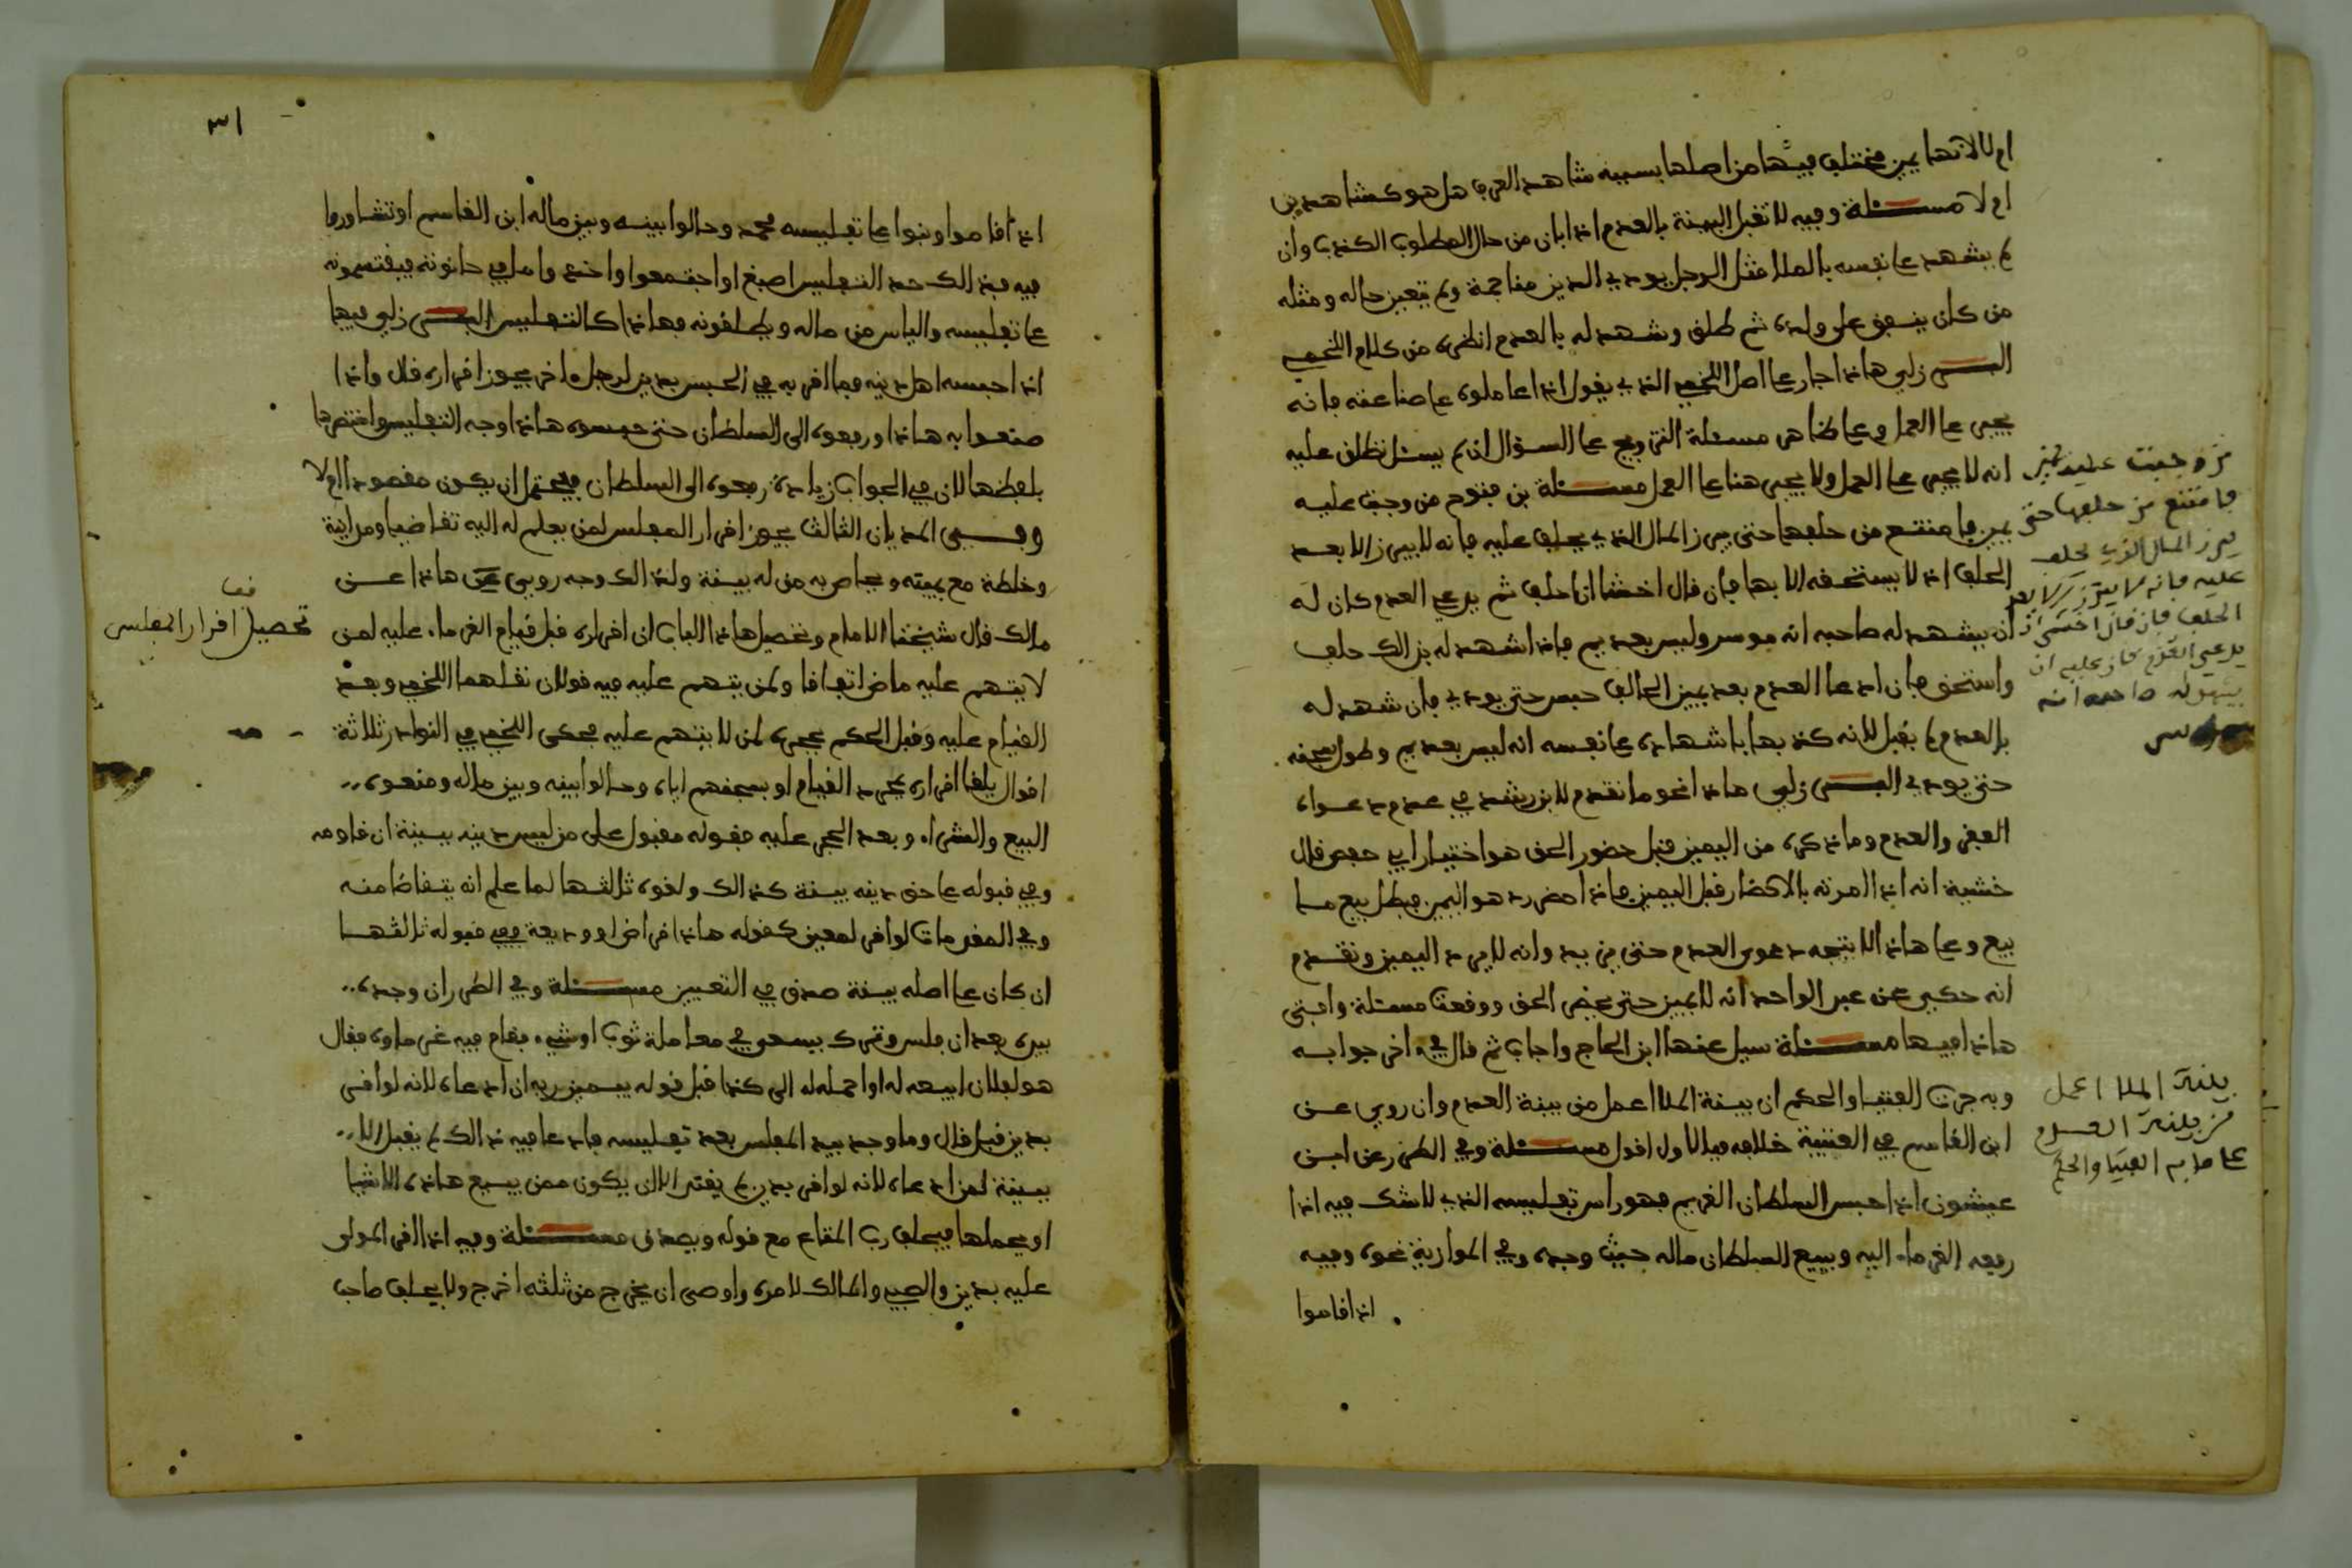 ام لا لانها يمين مختلف فيها من اصلها بسببه شاهد العرف هل هو كشاهدين
ام لا مسئلة وفيه لا تقبل البينة بالعدم اذا بان من حال المطلوب الكذب وان
لم يشهد على نفسه بالملا مثل الرجل يودي الدين مناجمة ولم يتغير حاله ومثله
من كان ينفق على ولده ثم طلق وشهد له بالعدم انظره من كلام اللخمي
البرزلي هاذا جار على اصل اللخمي الذي يقول اذا عاملوه على صناعته فانه
يجبر على العمل وعلى ظاهر مسئلة التزويج على السؤال ان لم يسئل نطلق عليه
انه لا يجبر على العمل ولا يجبر هنا على العمل مسئلة بن فتوح من وجبت عليه
يمين فامتنع من حلفها حتى يبرز المال الذي يحلف عليه فانه لا يبرز الا بعد
الحلف اذ لا يستحقه الا بها فان قال اخشا ان احلف ثم يدعي العدم كان له
ان يشهد له صاحبه انه موسر وليس بعديم فاذا شهد له بذالك حلف
واستحق فان ادعا العدم بعد يمين الحالف حبس حتى يودي فان شهد له
بالعدم لم يقبل لانه كذبها باشهاده على نفسه انه ليس بعديم وطول سجنه
حتى يودي البرزلي هاذا نحو ما تقدم لابن رشد في عدم دعواه
الفقر والعدم وما ذكره من اليمين قبل حضور الحق هو اختيار ابي حفص قال
خشية انه اذا الزمته بالاحضار قبل اليمين فاذا حضر رد هو اليمين فيطل بيع ما
بيع وعلى هاذا لا يتجه دعوى العدم حتى من يد وانه لا يرد اليمين وتقدم
انه حكي عن عبد الواحد انه لا يمين حتى يحضر الحق ووقعت مسئلة وافتى
هاذا فيها مسئلة سيل عنها ابن الحاج واجاب ثم قال في اخر جوابه
وبه جرت الفتيا والحكم ان بينة الملا اعمل من بينة العدم وان روي عن
ابن القاسم في العتبية خلافه فبالاول اقول مسئلة وفي الطرر عن ابن
عبشون اذا حبس السلطان الغريم فهو راس تفليسه الذي لا شك فيه اذا
رفعه الغرماء اليه ويبيع السلطان ماله حيث وجده وفي الموازية نحوه وفيه
اذا قاموا
من وجبت عليه يمين
فامتنع من حلفها حتى
يبرز المال الذي يحلف
عليه فانه لا يبرز الا بعد
الحلف فان قال اخشى ان
يدعي العدم كان عليه ان
يشهد له صاحبه انه
موسر
بينة الملا اعمل
من بينة العدم
على ما به الفتيا والحكم
٣١
اذا قاموا وثبوا على تفليسه محمد وحالوا بينه وبين ماله ابن القاسم او تشاوروا
فيه فبذالك حد التفليس اصبغ او اجتمعوا واخذوا ما في حانوته فيقتسمونه
على تفليسه والياس من ماله ويطلقونه فهاذا كالتفليس البرزلي فيها
اذا حبسه اهل دينه فما اقر به في الحبس بدين لرجل اخر يجوز اقراره قال واذا
صنعوا به هاذا ورفعوه الى السلطان حتى حبسوه هاذا وجه التفليس واختصرها
بلفظها لان في الجواب زيادة رفعوه الى السلطان فيحتمل ان يكون مقصودا ام لا
وفي المديان الثالث يجوز اقرار المفلس لمن يعلم له اليه تقاضيا ومداينة
وخلطة مع يمينه ويحاص به من له بينة ولذالك وجه روي هاذا عن
مالك قال شيخنا الامام وتحصيل هاذا الباب ان اقراره قبل قيام الغرماء عليه لمن
لا يتهم عليه ماض اتفاقا ولمن يتهم عليه فيه قولان نقلهما اللخمي وبعد
القيام عليه وقبل الحكم بحجره لمن لا يتهم عليه فحكى اللخمي في النوادر ثلاثة
اقوال يلغا اقراره بمجرد القيام او بسجنهم اياه وحالوا بينه وبين ماله ومنعوه
البيع والشراء وبعد الحجر عليه فقوله مقبول على من ليس دينه ببينة ان قاومه
وفي قبوله على حق دينه ببينة كذالك ولغوه ثالثها لما علم انه يتقاضا منه
وفي المقدمات لو اقر لمعين كقوله هاذا قراض او وديعة ففي قبوله ثالثها
ان كان على اصله بينة صدق في التعيين مسئلة وفي الطرر ان وجد
بيده بعد ان فلس وترك يسعى في معاملة ثوب او شيء فقام فيه غرماوه فقال
هو لفلان ابيعه له او احمله له الى كذا قبل قوله بيمين ربه ان ادعاه لانه لو اقر
بدين قبل قال وما وجد بيد المفلس بعد تفليسه فادعا فيه ذالك لم يقبل الا
ببينة لمن ادعاه لانه لو اقر بدين لم يقبل الا ان يكون ممن يبيع هاذه الاشيا
او يحملها فيحلف رب المتاع مع قوله ويصدق مسئلة وفيه اذا اقر المولى
عليه بدين والصبي والمالك لامره واوصى ان يخرج من ثلثه اخرج ولا يحلف صاحب
قف
تحصيل اقرار المفلس